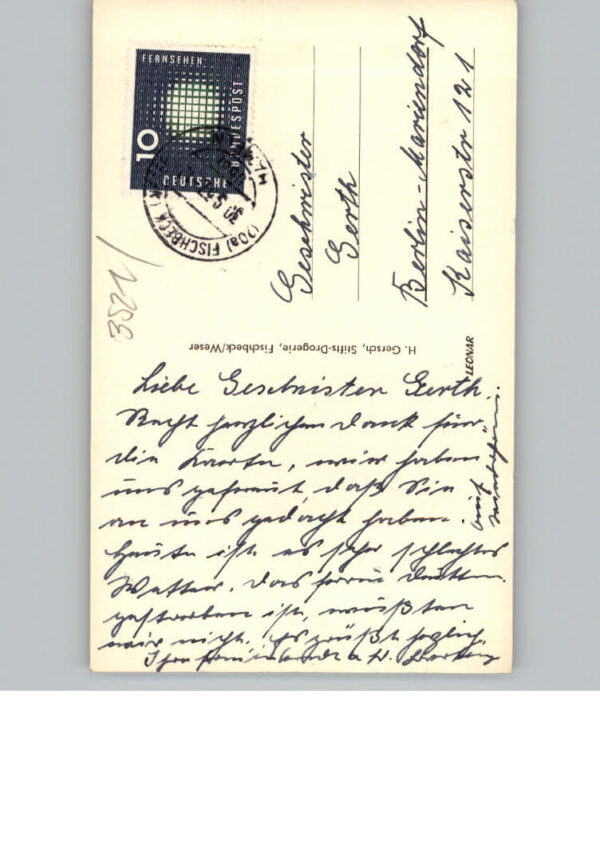 FERNSEHEN
10
DEUTSCHE
BUNDESPOST
(20a) FISCHBECK
3521/
Geschwister
Gerth
Berlin-Mariendorf
Kaiserstr 121
H. Gersch, Stifts-Drogerie, Fischbeck/Weser
LEONAR
Liebe Geschwister Gerth.
Recht herzlichen Dank für
die Karte, wir haben
uns gefreut, daß Sie
an uns gedacht haben.
Heute ist es sehr schlechtes
Wetter. Das Frau
gestorben ist, wußten
wir nicht. Es grüßt
Ihre
auf